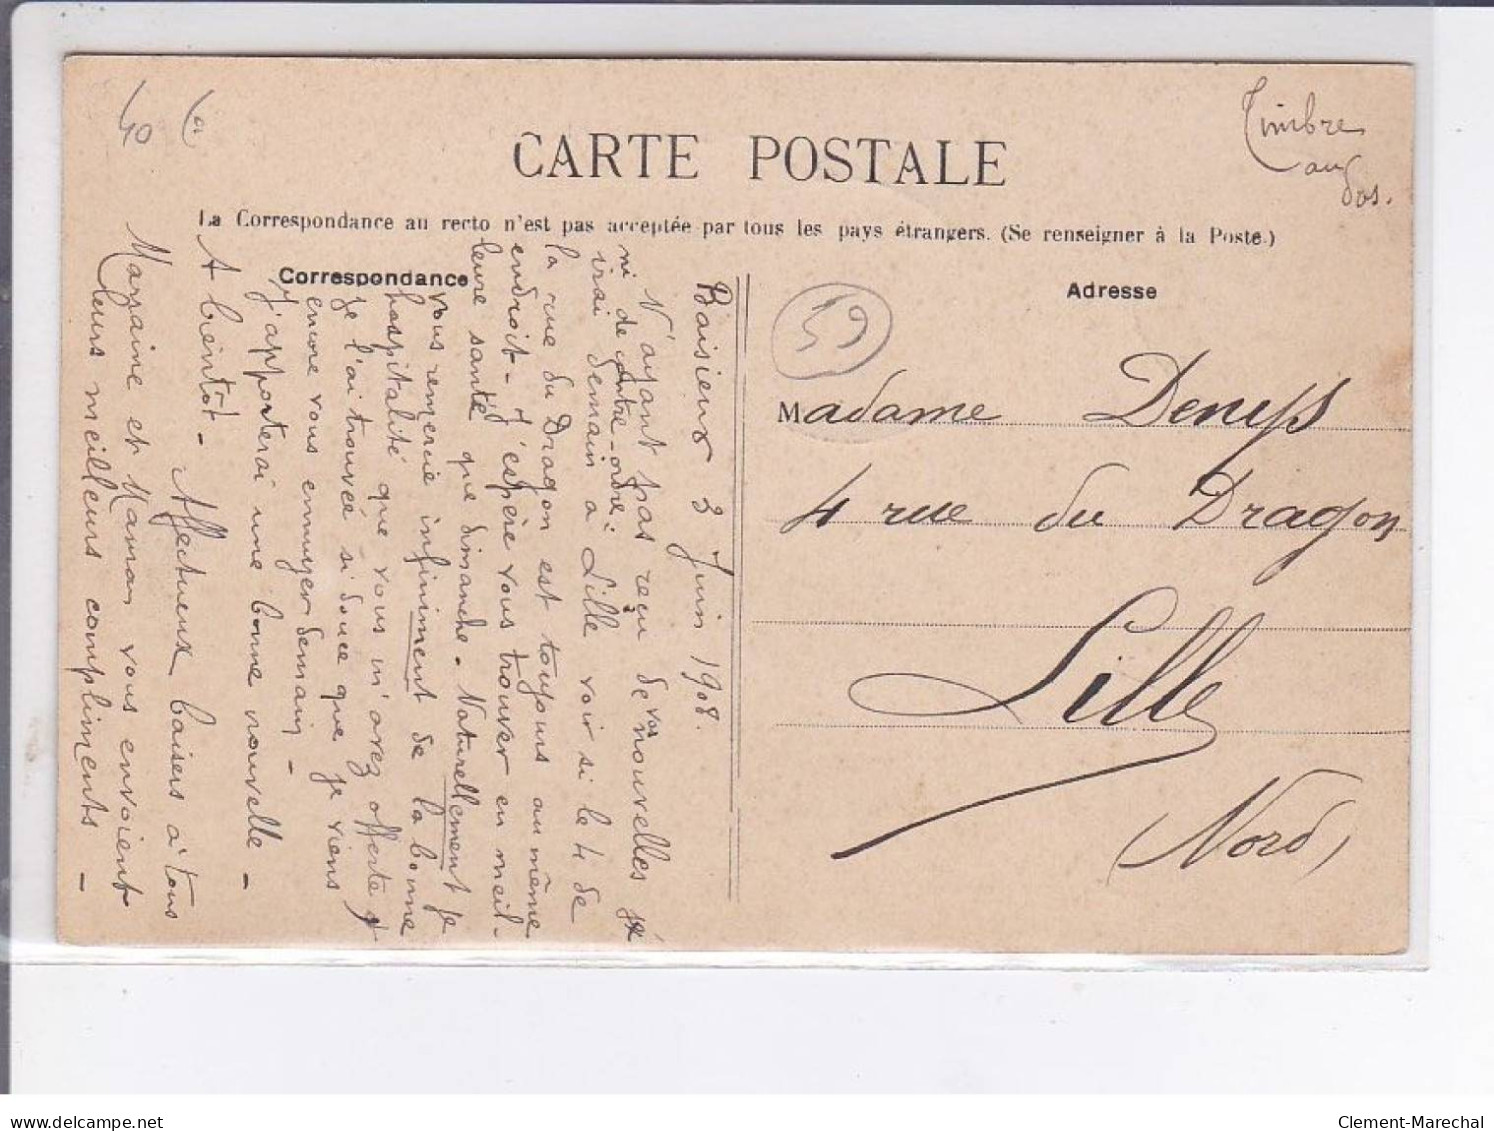 40
Timbre
au
dos.
CARTE POSTALE
La Correspondance au recto n'est pas acceptée par tous les pays étrangers. (Se renseigner à la Poste.)
Correspondance
Adresse
59
Baisieux 3 Juin 1908.
N'ayant pas reçu de vos nouvelles
ni de contre-ordre: je
irai demain à Lille voir si le 4 de
la rue du Dragon est toujours au même
endroit - J'espère vous trouver en meil-
leure santé que dimanche - Naturellement je
vous remercie infiniment de la bonne
hospitalité que vous m'avez offerte &
je l'ai trouvée si douce que je viens
encore vous ennuyer demain -
J'apporterai une bonne nouvelle -
A bientôt - Affectueux baisers à tous
Marraine et Maman vous envoient
leurs meilleurs compliments -
Madame Denys
4 rue du Dragon
Lille
(Nord)
Clement-Marechal